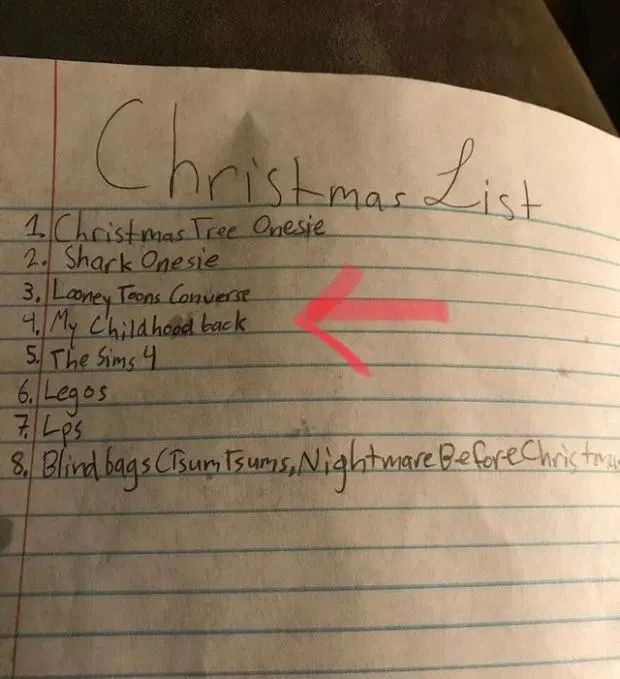 Christmas List
1. Christmas Tree Onesie
2. Shark Onesie
3. Looney Toons Converse
4. My Childhood back
5. The Sims 4
6. Legos
7. Lps
8. Blind bags (Tsum Tsums, Nightmare Before Christmas